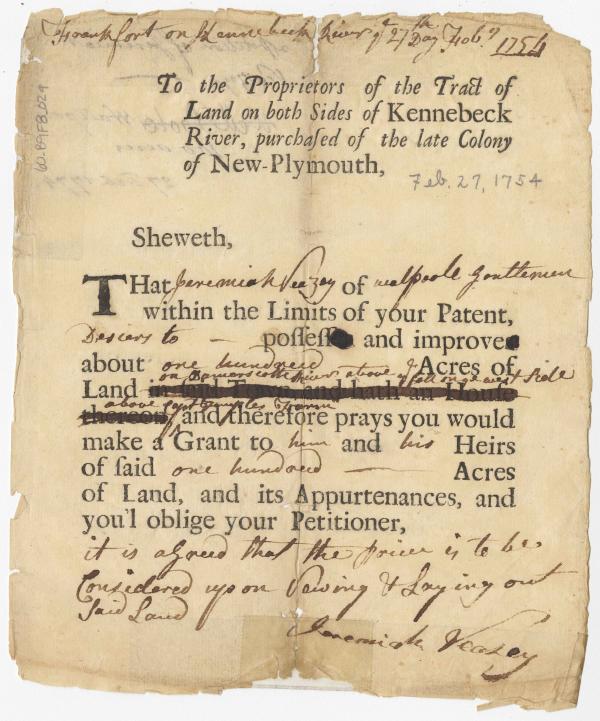 Frankfort on Kennebeck River ye 27th Day Feb.y 1754
60.89FB.029
To the Proprietors of the Tract of
Land on both Sides of Kennebeck
River, purchaſed of the late Colony
of New-Plymouth,
Feb. 27, 1754
Sheweth,
THat Jeremiah Veazey of walpoole Gentlemen
within the Limits of your Patent,
Desiers to — poſſeſs and improve
about one hundreed Acres of
on Damerscotte River above ye fall on ye west Side
Land in ſaid Town, and hath an Houſe
above Temples Farm
thereon, and therefore prays you would
make a Grant to him and his Heirs
of ſaid one hundreed — Acres
of Land, and its Appurtenances, and
you'l oblige your Petitioner,
it is agreed that the price is to be
Considered upon Vewing & Laying out
Said Land
Jeremiah Veazey